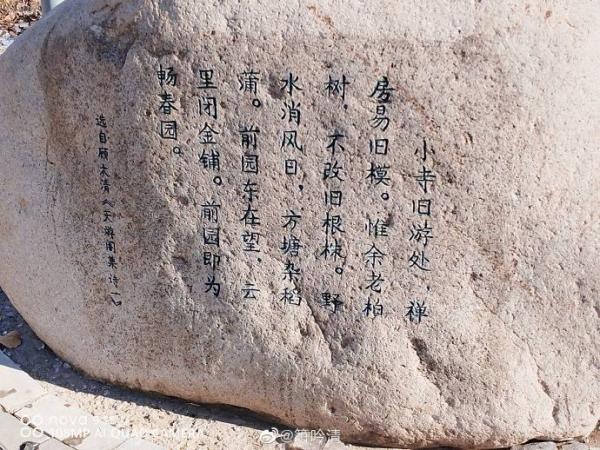 小寺旧游处,禅
房易旧模。惟余老柏
树,不改旧根株。野
水消风日,方塘杂稻
蒲。前园东在望,云
里闭金铺。前园即为
畅春园。
选自顾太清《天游阁集诗一》
nova
108MP AI QUAD CAMERA